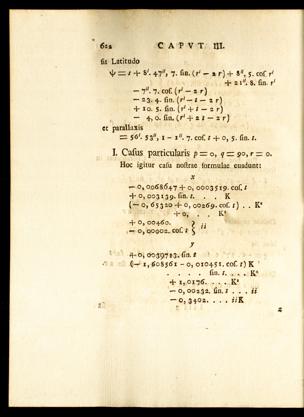 622 CAPVT III.
fit Latitudo
ψ = t + 8'. 47", 7. sin. (r' — 2 r) + 8", 5. cos. r'
+ 21". 8. sin. r'
— 7". 7. cos. (r' — 2 r)
— 23. 4. sin. (r' — t — 2 r)
+ 10. 5. sin. (r' + t — 2 r)
— 4, 0. sin. (r' + 2 t — 2 r)
et parallaxis
= 56'. 53", 1 — 1". 7. cos. t + 0, 5. sin. t.
I. Casus particularis p = 0, q = 90, r = 0.
Hoc igitur casu nostrae formulae euadunt:
x
— 0,0068647 + 0,0003519. cos. t
+ 0,003139. sin. t. . . . K
(— 0,65320 + 0,00269. cos. t) . . K²
+ 0, . . K³
+ 0,00460.
— 0,00902. cos. t } ii
y
+ 0,0039783. sin. t
(— 1,608561 — 0,010451. cos. t) K
. . . . . sin. t. . . . K²
+ 1,0176. . . . K³
— 0,00232. sin. t . . . ii
— 0,3402. . . . ii K
2